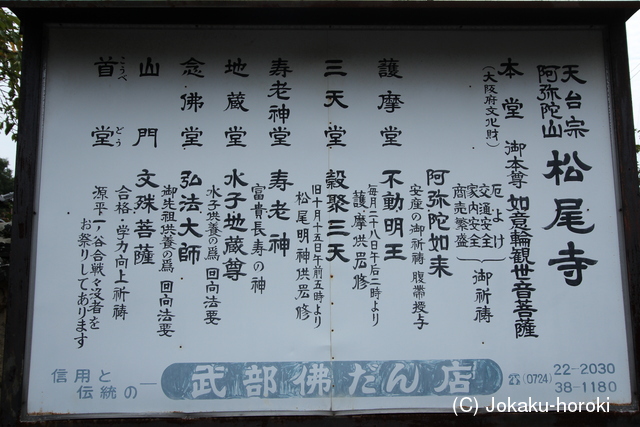 天台宗
阿弥陀山
松尾寺
本堂
(大阪府文化財)
御本尊 如意輪観世音菩薩
厄よけ
交通安全
家内安全
商売繁盛
御祈祷
阿弥陀如来
安産の御祈祷 腹帯授与
護摩堂 不動明王
毎月二十八日午后二時より
護摩供厳修
三天堂 穀聚三天
旧十月十五日午前五時より
松尾明神供厳修
寿老神堂 寿老神
富貴長寿の神
地蔵堂 水子地蔵尊
水子供養の為 回向法要
念佛堂 弘法大師
御先祖供養の為 回向法要
山門 文殊菩薩
合格・学力向上祈祷
首堂
こうべ どう
源平一ノ谷合戦々没者を
お祭りしてあります
信用と
伝統の
武部佛だん店
☎(0724) 22-2030
38-1180
(C) Jokaku-horoki